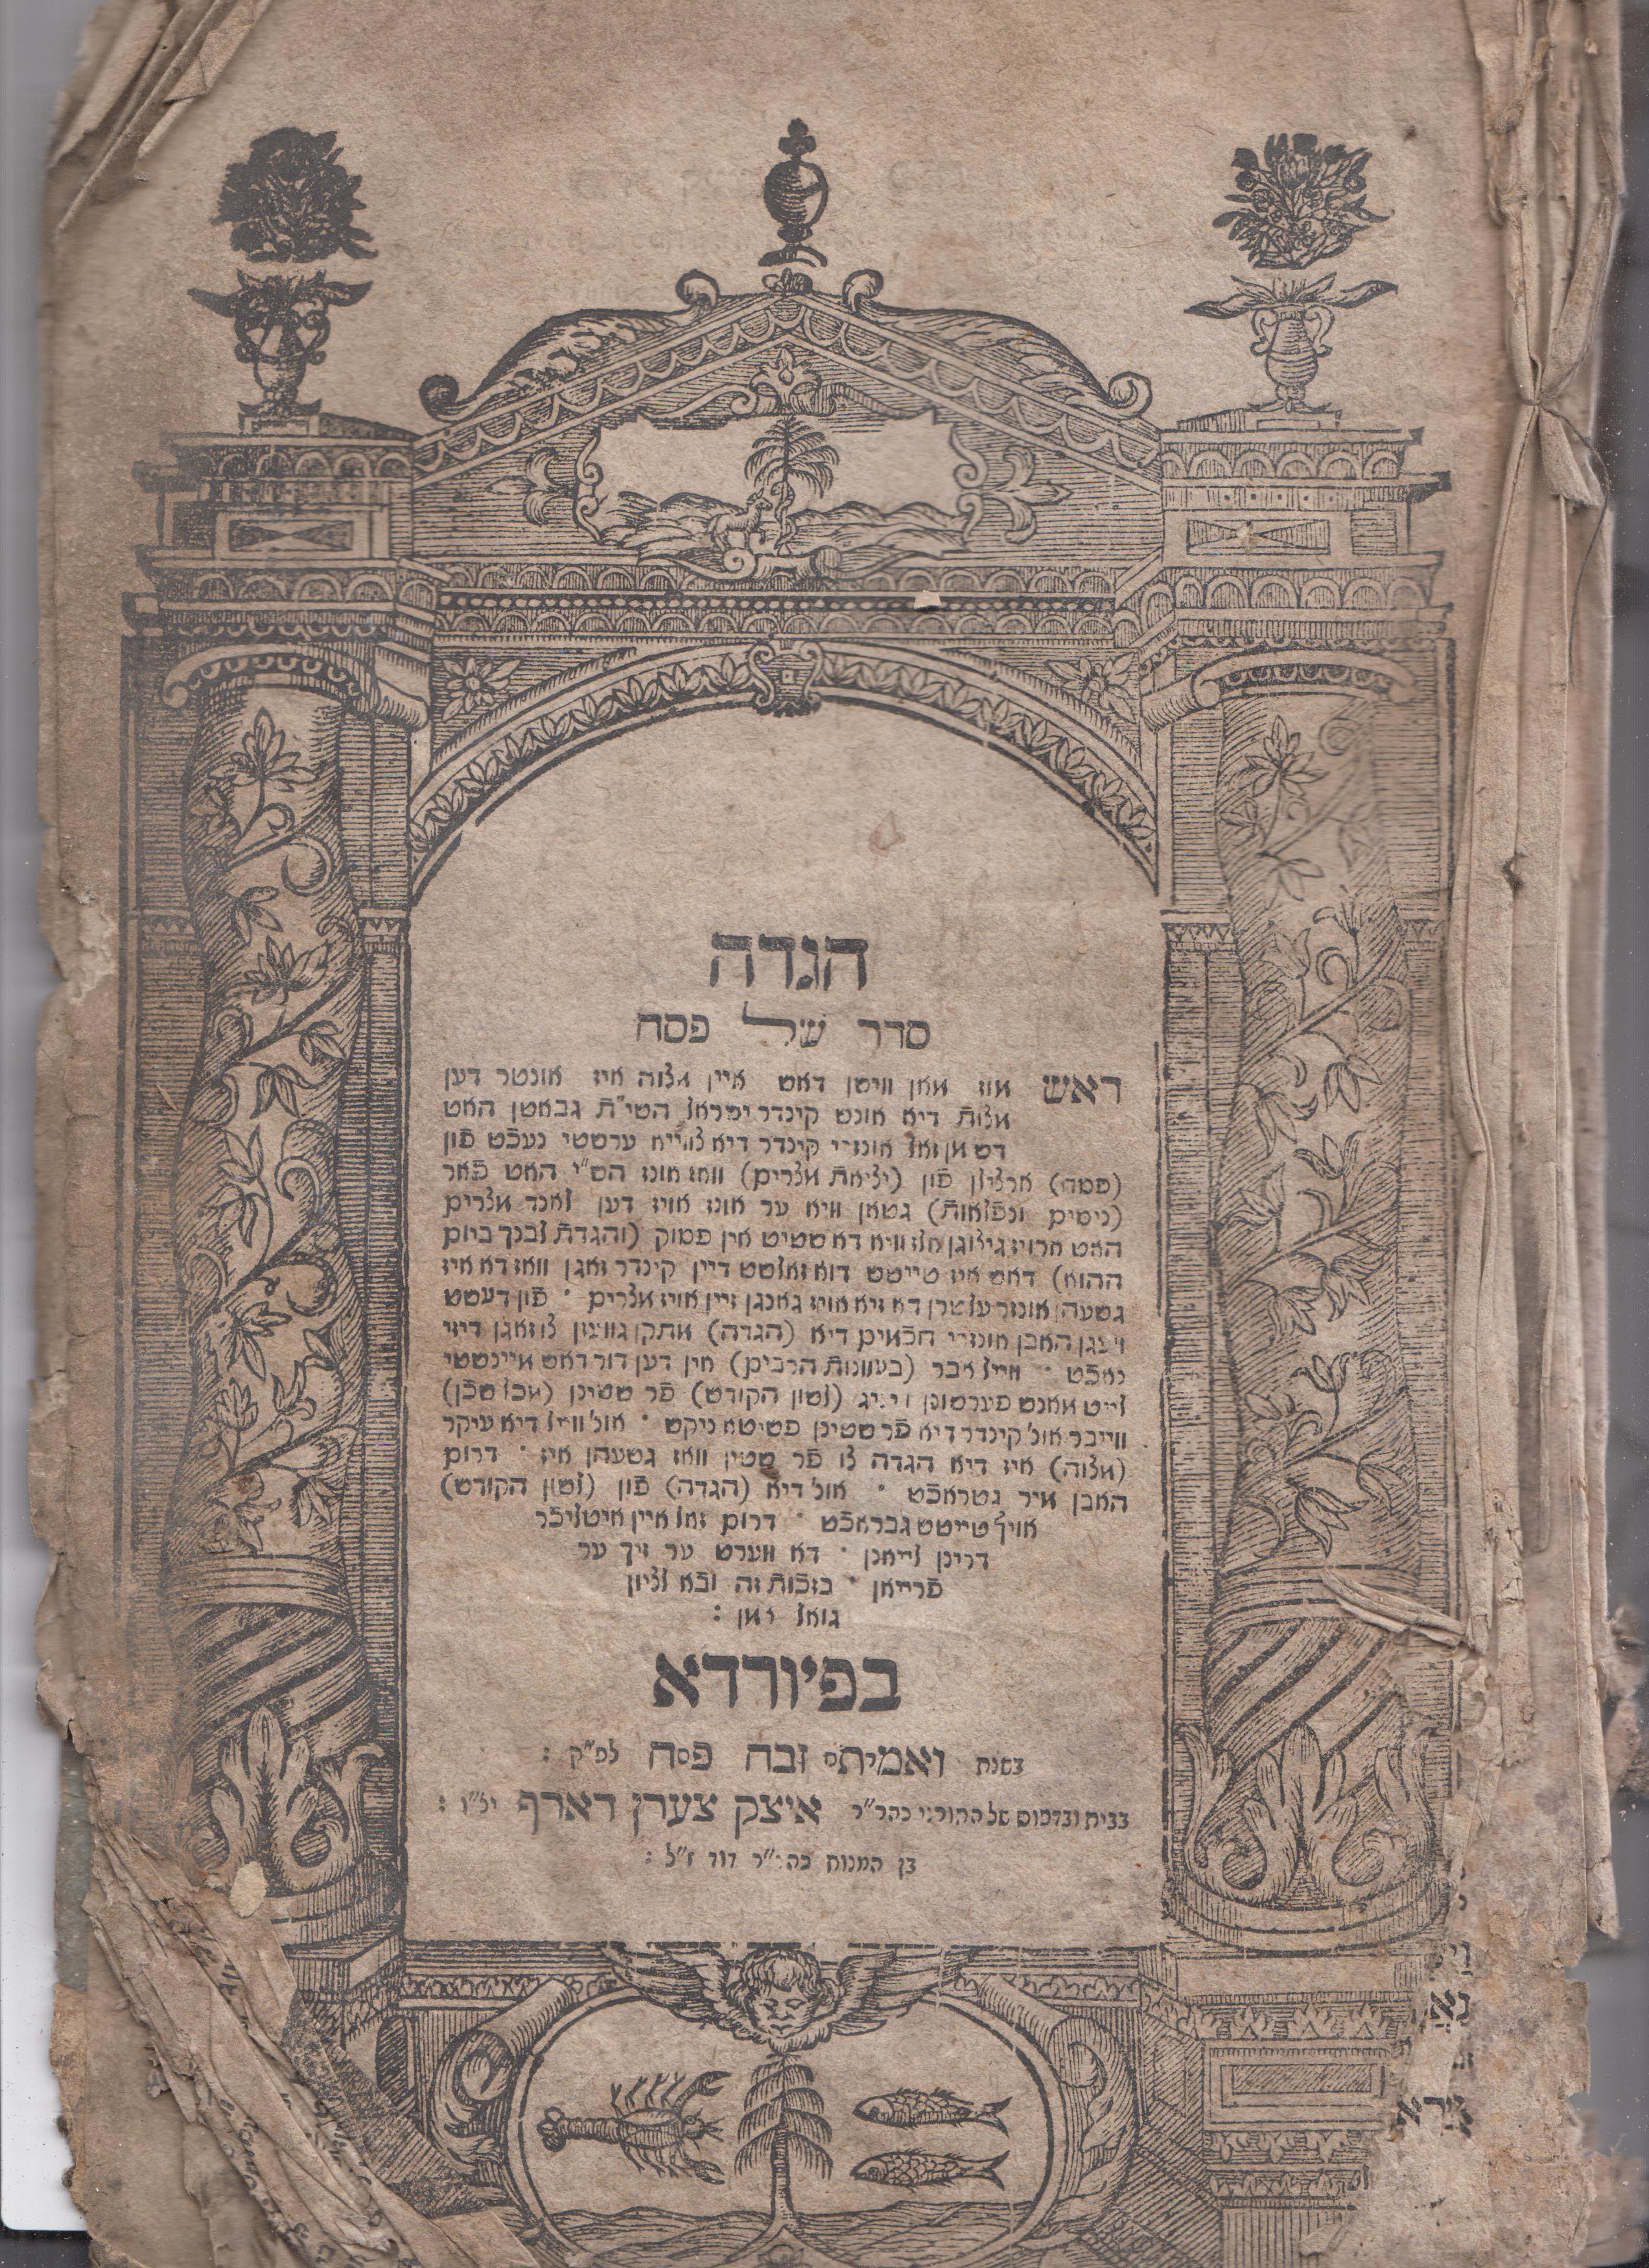 הגדה
סדר של פסח
ראש מוז מאן וויסן דאש איין מצוה איז אונטר דען
מצות דיא אונש קינדר ישראל השי"ת גבאטן האט
דש מן זאל אונזרי קינדר דיא צווייא ערשטי נעכט פֿון
(פסח) ארציילן פֿון (יציאת מצרים) וואז אונז הש"י האט פֿאר
(ניסים ונפלאות) געטאן וויא ער אונז אויז דען לאנד מצרים
האט ארויז גיצוגן אלז וויא דא שטיט אין פסוק (והגדת לבנך ביום
ההוא) דאש איז טייטש דוא זאלשט דיין קינדר זאגן וואז דא איז
געשעה אונזר עלטרן דא זיא אויז גאנגן זיין אויז מצרים • פֿון דעשט
וועגן האבן אונזרי חכמים דיא (הגדה) מתקן גוועזן צו זאגן דיזי
נאכט • ווייל אבר (בעוונות הרבים) אין דען דור דאש מיינשטי
לייט מאנש פערשונן וויניג (לשון הקודש) פֿר שטינן (מכל שכן)
ווייבר אונ' קינדר דיא פֿר שטינן פשיטא ניקש • אונ' ווייל דיא עיקר
(מצוה) איז דיא הגדה צו פֿר שטין וואז געשעהן איז • דרום
האבן מיר גטראכט • אונ' דיא (הגדה) פֿון (לשון הקודש)
אויף טייטש גבראכט • דרום זאל איין איטליכר
דרינן לייאנן • דא ווערט ער זיך ער
פֿרייאן • בזכות זה ובא לציון
גואל אמן :
בפיורדא
בשנת ואמרתם זבח פסח לפ"ק :
בבית ובדפוס של התורני כהר"ר איצק צערן דארף יצ"ו :
בן המנוח כהר"ר דוד ז"ל :